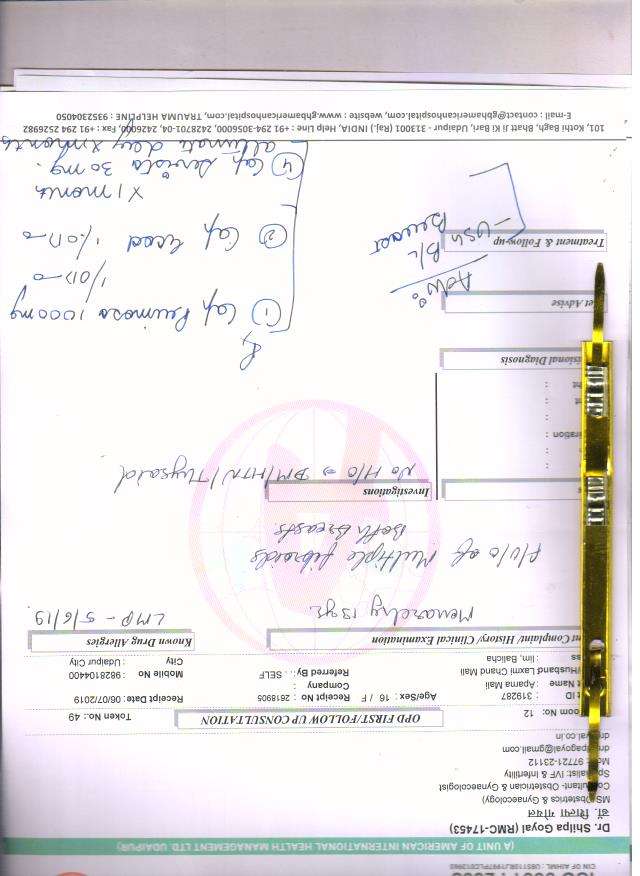 CIN OF AIHML : U85110RJ1997PLC012963
(A UNIT OF AMERICAN INTERNATIONAL HEALTH MANAGEMENT LTD. UDAIPUR)
Dr. Shilpa Goyal (RMC-17453)
डॉ. शिल्पा गोयल
MS (Obstetrics & Gynaecology)
Consultant- Obstetrician & Gynaecologist
Specialist: IVF & Infertility
97721-23112
goyal@gmail.com
al.co.in
OPD FIRST/FOLLOW UP CONSULTATION
Room No: 12
Token No.: 49
ID : 319287
Age/Sex: 16 / F
Receipt No : 2618905
Receipt Date : 06/07/2019
Name : Aparna Mali
Company :
/Husband Laxmi Chand Mali
Referred By... : SELF
Mobile No : 9828104400
ss : Iim, Balicha
City : Udaipur City
nt Complaint/ History/ Clinical Examination
Known Drug Allergies
Menarchy 13 yr.
LMP - 5/6/19
P/V/o of Multiple fibroids
Both Breasts.
Investigations
No H/o → DM/HTN/Thyroid
isional Diagnosis
et Advise
Adv:
Rx
① Cap 1000mg
1/OD
② Cap 1/OD
x 1 month
④ Cap Sevista 30 mg.
alternate day x months
Treatment & Follow-up
- USG B/L
Breast
101, Kothi Bagh, Bhatt Ji Ki Bari, Udaipur - 313001 (Raj.) INDIA, Help Line : +91 294-3056000, 2428701-04, 2426000, Fax : +91 294 2526982
E-mail : contact@gbhamericanhospital.com, website : www.gbhamericanhospital.com, TRAUMA HELPLINE : 9352304050